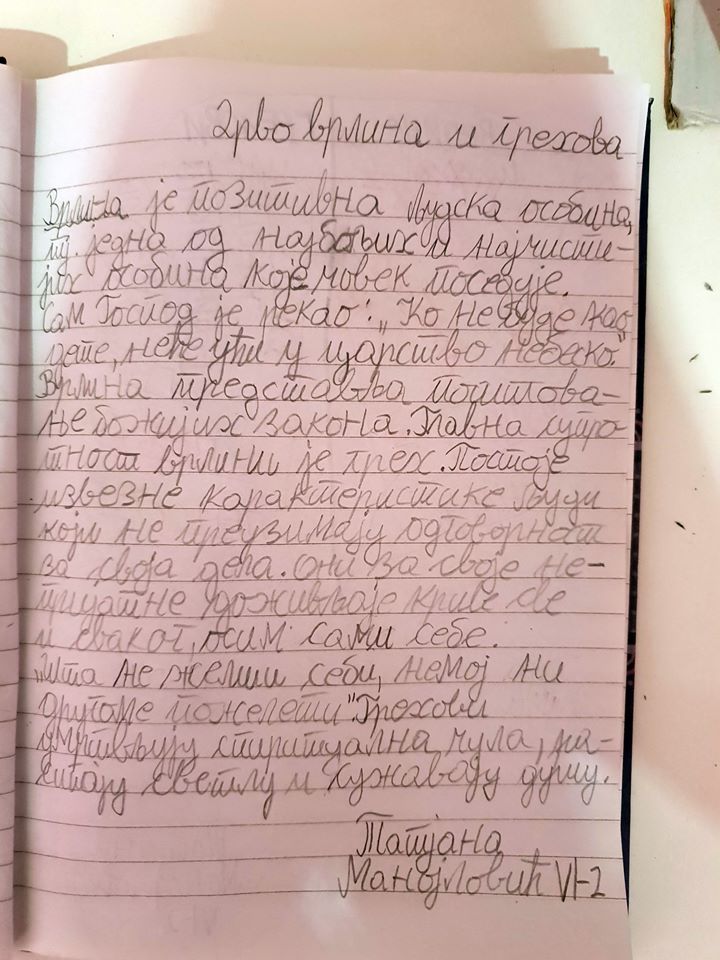 Дрво врлина и грехова
Врлина је позитивна људска особина,
тј. једна од најбољих и најчисти-
јих особина које човек поседује.
Сам Господ је рекао: „Ко не буде као
дете, неће ући у царство небеско."
Врлина представља поштова-
ње божијих закона. Главна супро-
тност врлини је грех. Постоје
извезне карактеристике људи
који не преузимају одговорност
за своја дела. Они за своје не-
пријатне доживљаје криве све
и сваког, осим сами себе.
„Шта не желиш себи, немој ни
другоме пожелети" Грехови
умртвљују спиритуална чула,
светлу и душу.
Татјана
Манојловић VI-2